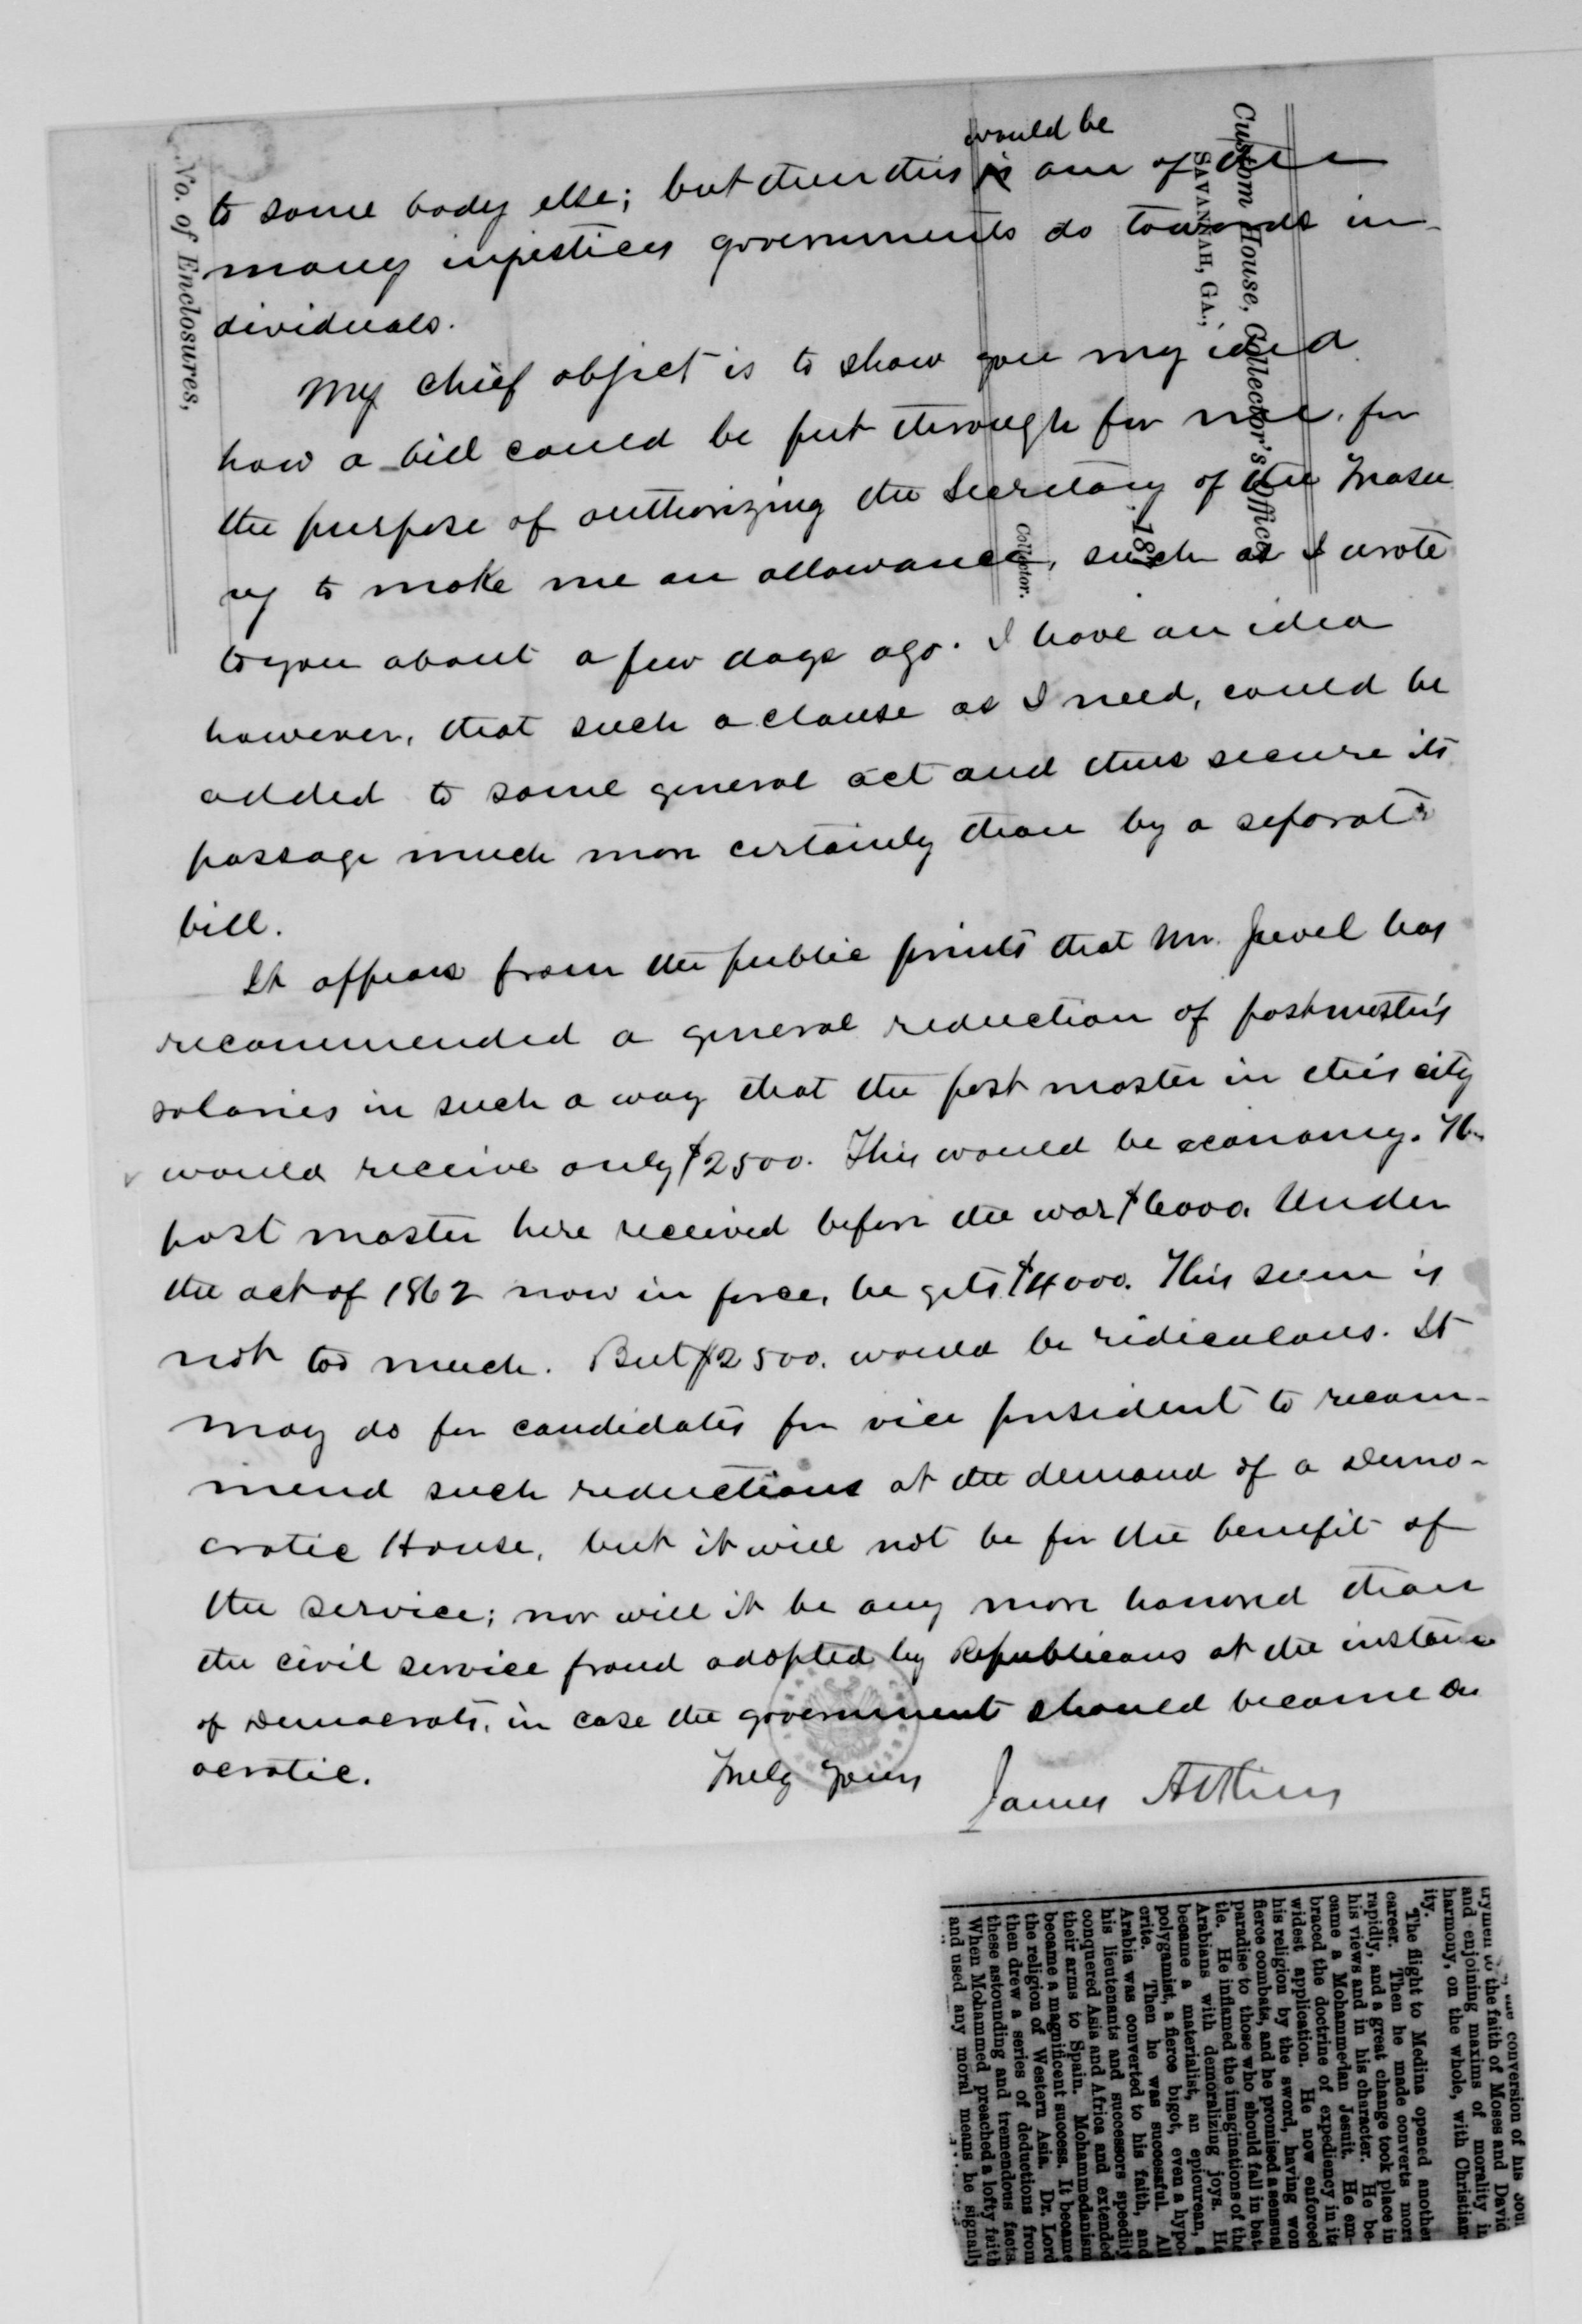 would be
to some body else; but then this is one of the
many injustices governments do towards in-
dividuals.
My chief object is to show you my idea
how a bill could be put through for me, for
the purpose of authorizing the Secretary of the Treasu
ry to make me an allowance, such as I wrote
to you about a few days ago. I have an idea
however, that such a clause as I need, could be
added to some general act and thus secure its
passage much more certainly than by a separate
bill.
It appears from the public prints that Mr. Jewel has
recommended a general reduction of postmaster's
salaries in such a way that the post master in this city
would receive only $2500. This would be economy. The
post master here received before the war $6000. Under
the act of 1862 now in force, he gets $4000. This sum is
not too much. But $2500. would be ridiculous. It
may do for candidates for vice president to recom-
mend such reductions at the demand of a Demo-
cratic House, but it will not be for the benefit of
the service; nor will it be any more honored than
the civil service fraud adopted by Republicans at the instance
of Democrats, in case the government should become De
ocratic.
Truly Yours
James Atkins
No. of Enclosures,
Custom House, Collector's Office
SAVANNAH, GA.,
, 187
Collector.
conversion of his coun
trymen to the faith of Moses and David
and enjoining maxims of morality in
harmony, on the whole, with Christian-
ity.
The flight to Medina opened another
career. Then he made converts more
rapidly, and a great change took place in
his views and in his character. He be-
came a Mohammedan Jesuit. He em-
braced the doctrine of expediency in its
widest application. He now enforced
his religion by the sword, having won
fierce combats, and he promised a sensual
paradise to those who should fall in bat-
tle. He inflamed the imaginations of the
Arabians with demoralizing joys. He
became a materialist, an epicurean, a
polygamist, a fierce bigot, even a hypo-
crite. Then he was successful. All
Arabia was converted to his faith, and
his lieutenants and successors speedily
conquered Asia and Africa and extended
their arms to Spain. Mohammedanism
became a magnificent success. It became
the religion of Western Asia. Dr. Lord
then drew a series of deductions from
these astounding and tremendous facts.
When Mohammed preached a lofty faith
and used any moral means he signally